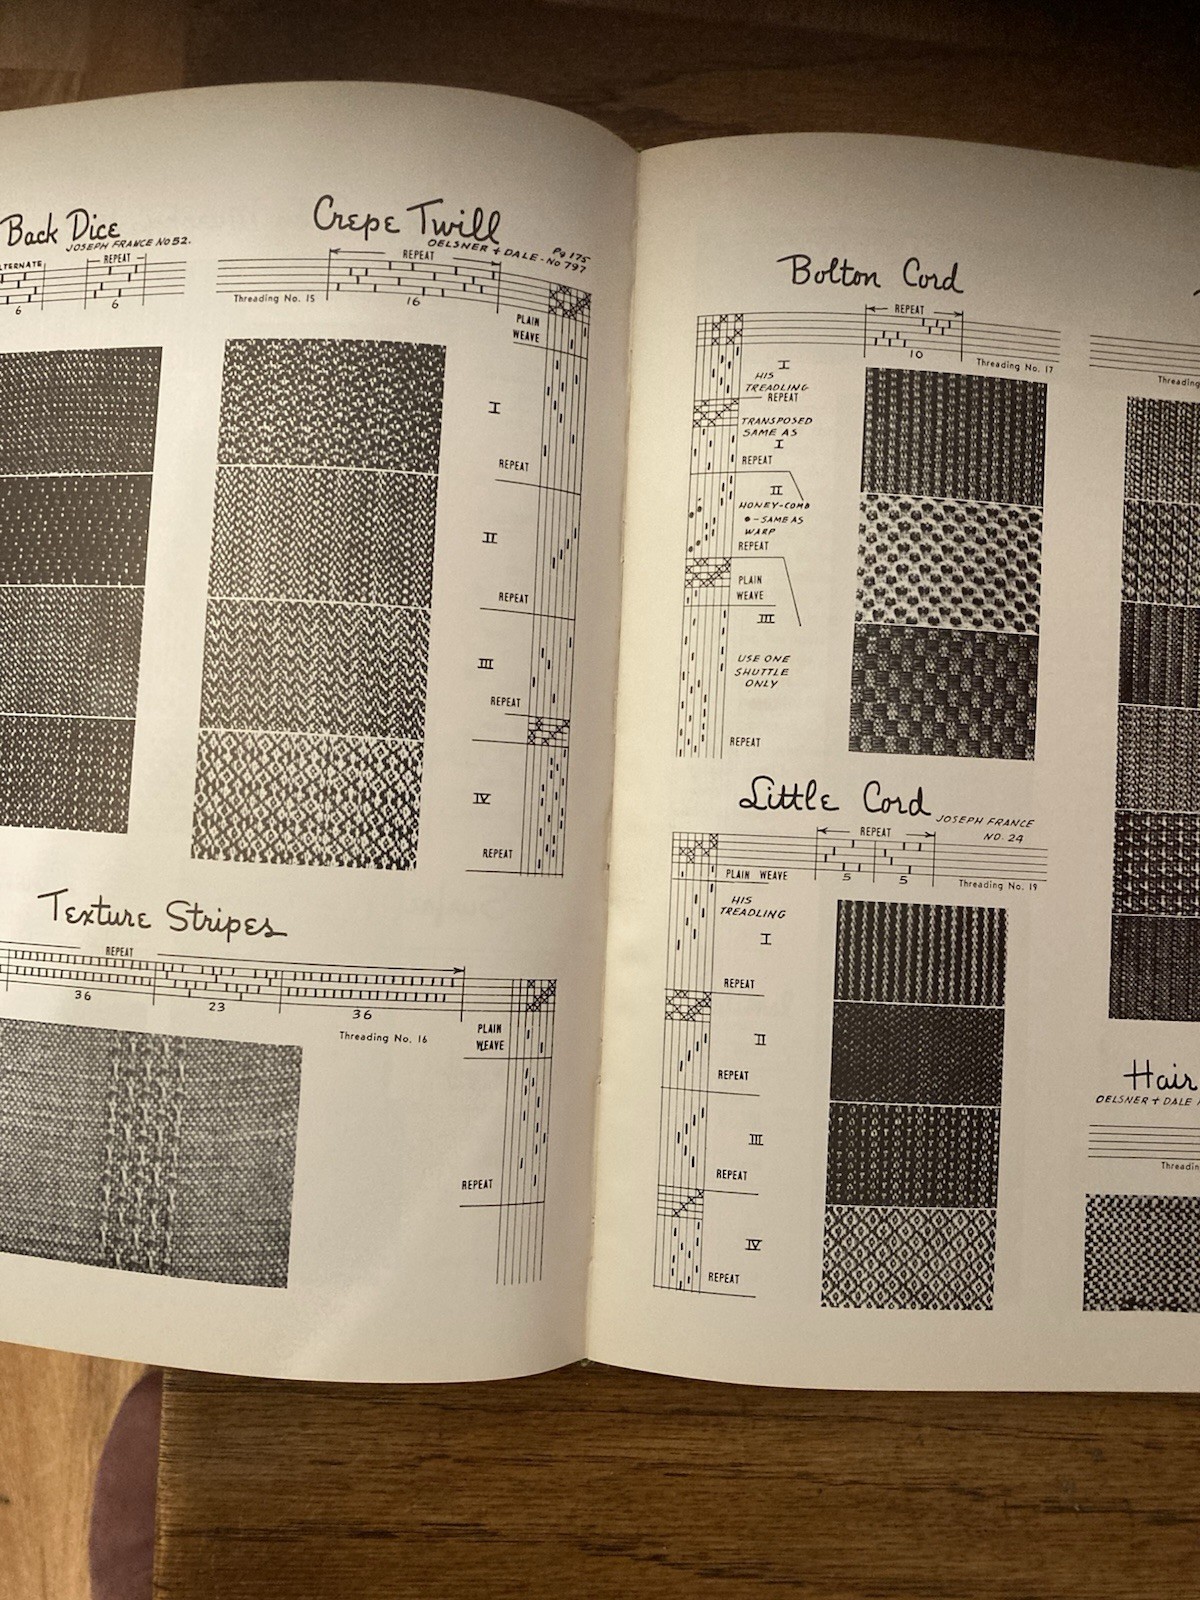 Back Dice
JOSEPH FRANCE No 52.
REPEAT
6
6
Crepe Twill
OELSNER + DALE - No 797
Pg 175
REPEAT
16
Threading No. 15
PLAIN
WEAVE
I
REPEAT
II
REPEAT
III
REPEAT
IV
REPEAT
Texture Stripes
REPEAT
36
23
36
Threading No. 16
PLAIN
WEAVE
REPEAT
Bolton Cord
REPEAT
10
Threading No. 17
I
HIS
TREADLING
REPEAT
TRANSPOSED
SAME AS
I
REPEAT
II
HONEY-COMB
● - SAME AS
WARP
REPEAT
PLAIN
WEAVE
III
USE ONE
SHUTTLE
ONLY
REPEAT
Little Cord
JOSEPH FRANCE
NO. 24
REPEAT
5
5
Threading No. 19
PLAIN WEAVE
HIS
TREADLING
I
REPEAT
II
REPEAT
III
REPEAT
IV
REPEAT
Hair
OELSNER + DALE